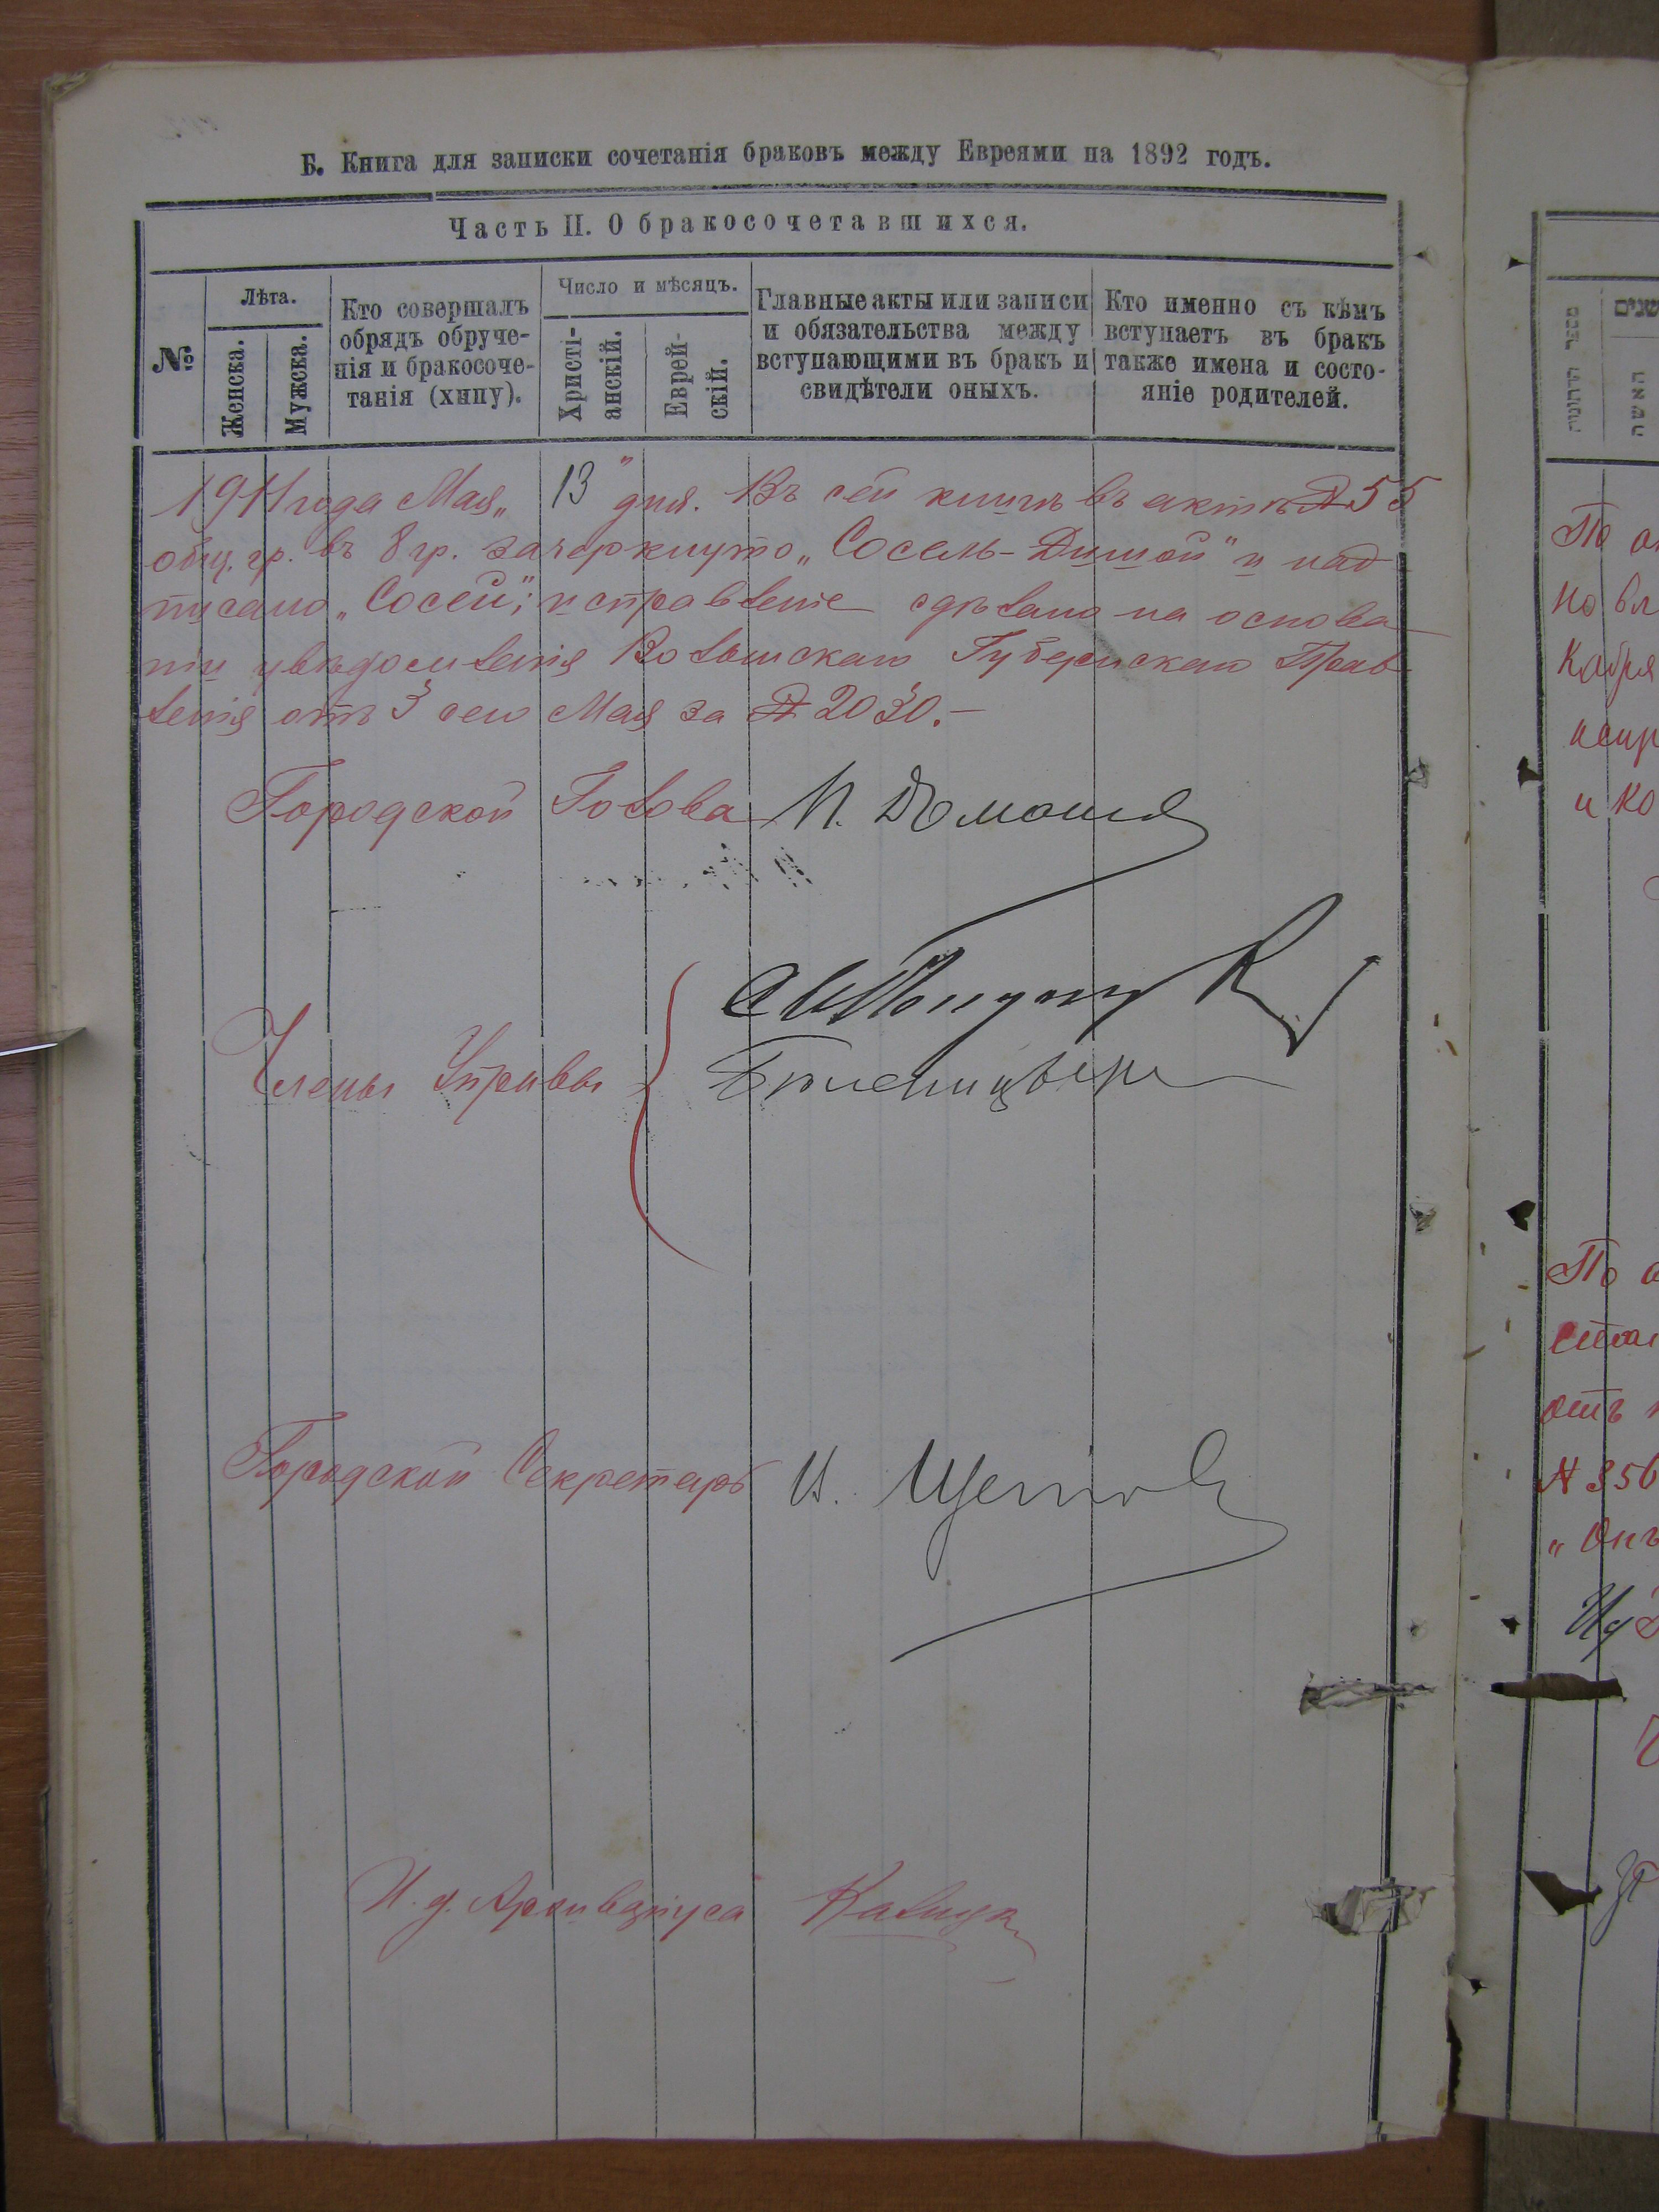 Б. Книга для записки сочетанія браковъ между Евреями на 1892 годъ.
Часть II. О бракосочетавшихся.
№
Лѣта.
Женска.
Мужска.
Кто совершалъ
обрядъ обруче-
нія и бракосоче-
танія (хупу).
Число и мѣсяцъ.
Христі-
анскій.
Еврей-
скій.
Главные акты или записи
и обязательства между
вступающими въ бракъ и
свидѣтели оныхъ.
Кто именно съ кѣмъ
вступаетъ въ бракъ
также имена и состо-
яніе родителей.
1911 года Мая „13" дня. Въ сей книгѣ въ актѣ № 55
общ. гр. въ 8 гр. зачеркнуто „Сосель-Димой" и над
писано „Сосей"; исправленіе сдѣлано на основа
ніи увѣдомленія Волынскаго Губернскаго Прав
ленія отъ 3 сего Мая за № 2030.—
Городской Голова
Члены Управы
Городской Секретарь И.
И. д. Архиваріуса
מספר הדתונות
שנים
האשה
По
но
Кабря
испр
и ко
По
отъ
№ 356
„Онъ